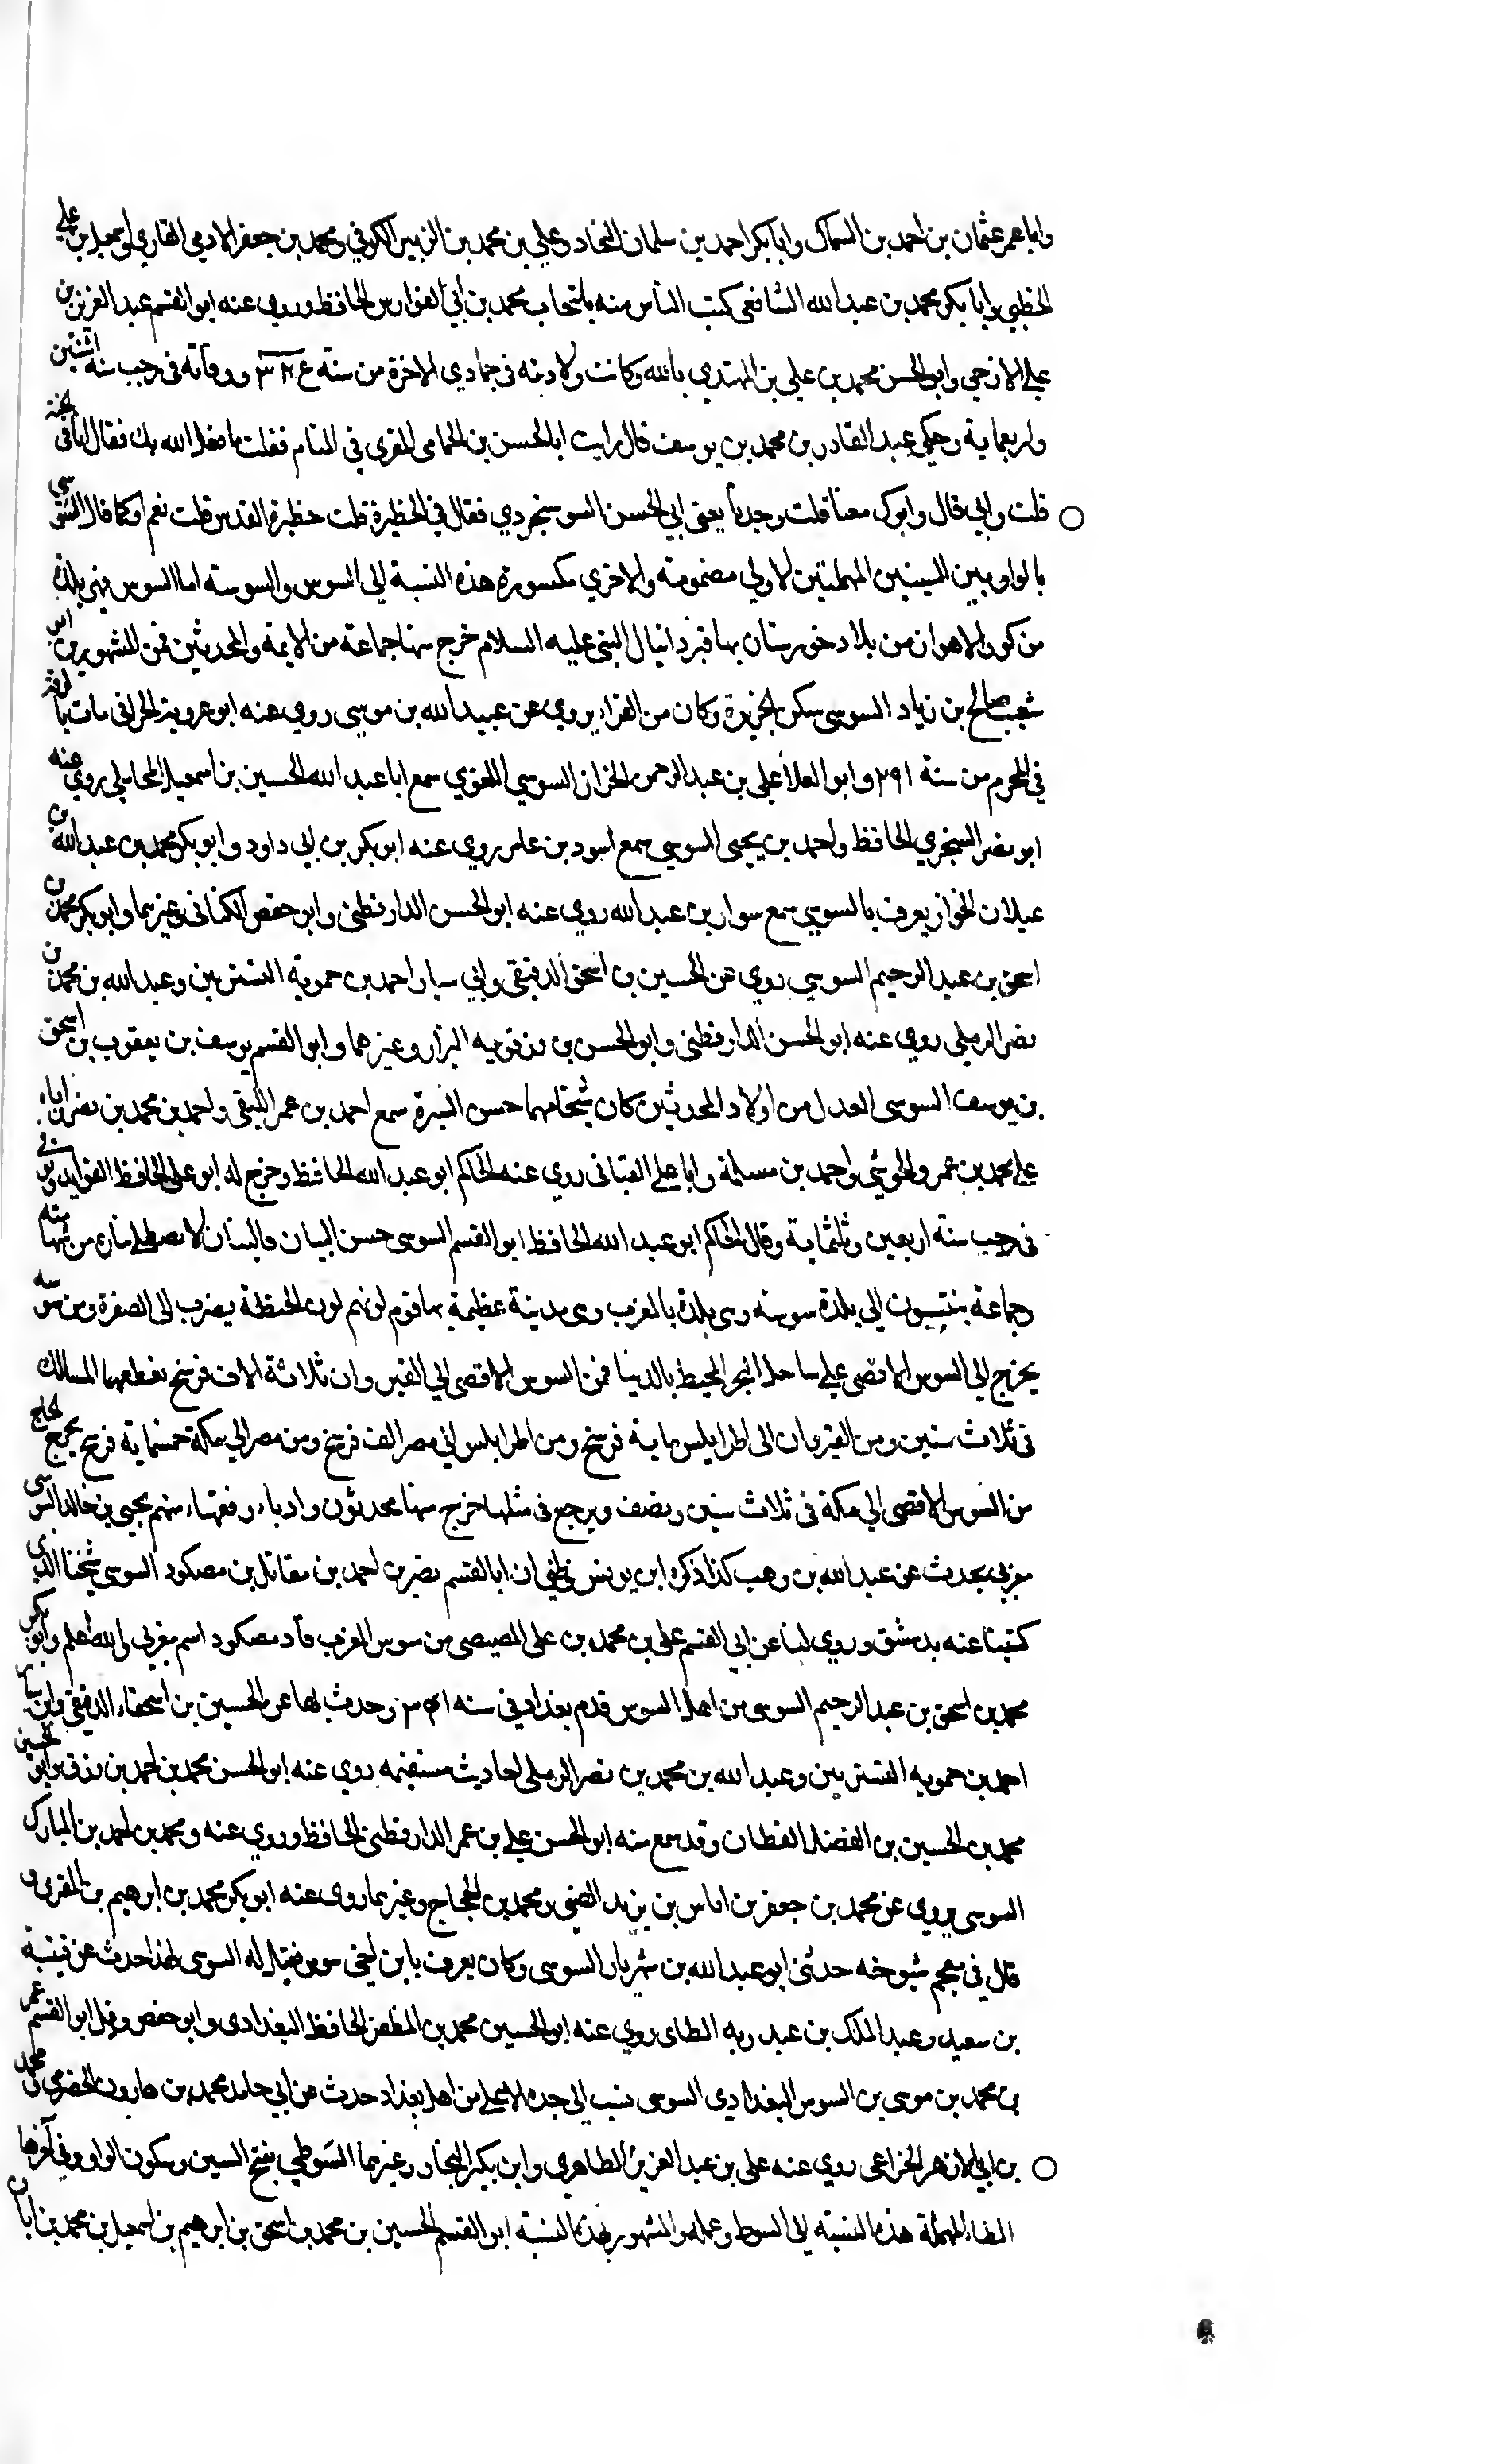 وابا عمر عثمان بن احمد بن السماك وابا بكر احمد بن سلمان النجاد وعلي بن محمد بن الزبير الكوفي ومحمد بن جعفر الادمي القاري واسمعيل بن علي
الخطبي وابا بكر محمد بن عبد الله الشافعي كتب الناس منه بانتخاب محمد بن ابي الفوارس الحافظ وروي عنه ابو القسم عبد العزيز بن
علي الازجي وابو الحسن محمد بن علي بن المهتدي بالله وكانت ولادته في جمادي الاخرة من سنة ووفاته في رجب سنه اثنتين
واربعماية وحكي عبد القادر بن محمد بن يوسف قال رايت ابا الحسن بن الحمامي المقري في المنام فقلت ما فعل الله بك فقال انا في الجنة
قلت وابي قال وابوك معنا قلت وجدنا يعني ابي الحسن السوسنجردي فقال في الحظيرة قلت حظيرة القدس قلت نعم او كما قال السوسي
بالواو بين السينين المهملتين الاولي مضمومة والاخري مكسورة هذه النسبة الي السوس والسوسة اما السوس فهي بلدة
من كور الاهواز من بلاد خورستان بها قبر دانيال النبي عليه السلام خرج منها جماعة من الايمة والمحدثين فمن المشهورين ابو
شعيب صالح بن زياد السوسي سكن الجزيرة وكان من القراء يروي عن عبيد الله بن موسي روي عنه ابو عروبة الحراني مات بالرقة
في المحرم من سنة ٢٩١ وابو العلا علي بن عبد الرحمن الخزاز السوسي اللغوي سمع ابا عبد الله الحسين بن اسمعيل المحاملي روي عنه
ابو نصر السجزي الحافظ واحمد بن يحيي السوسي سمع اسود بن عامر روي عنه ابو بكر بن ابي داود وابو بكر محمد بن عبد الله بن
عيلان الخزاز يعرف بالسوسي سمع سوار بن عبد الله روي عنه ابو الحسن الدارقطني وابو حفص الكتاني وغيرهما وابو بكر محمد بن
اسحق بن عبد الرحيم السوسي روي عن الحسين بن اسحق الدقيقي وابي سيار احمد بن حموية التستريين وعبد الله بن محمد بن
نصر الرملي روي عنه ابو الحسن الدارقطني وابو الحسن بن رزقويه البزار وغيرهما وابو القسم يوسف بن يعقوب بن اسحق
بن يوسف السوسي العدل من اولاد المحدثين كان شيخا حسن السيرة سمع احمد بن عمر واحمد بن محمد بن نصر اباه
علي محمد بن عمرو الحرشي واحمد بن مسلمة وابا علي القباني روي عنه الحاكم ابو عبد الله الحافظ وخرج له ابو علي الحافظ الفوايد وتوفي
في رجب سنة اربعين وثلثماية وقال الحاكم ابو عبد الله الحافظ ابو القسم السوسي حسن البيان
وجماعة ينتسبون الي بلدة سوسه وهي بلدة بالمغرب وهي مدينة عظيمة بها قوم لونهم لون الحنطة يضرب الي الصفرة ومن سوسه
يخرج الي السوس الاقصي علي ساحل البحر المحيط بالدنيا فمن السوس الاقصي الي القيروان ثلاثة الاف فرسخ يقطعها المسالك
في ثلاث سنين ومن القيروان الي اطرابلس ماية فرسخ ومن اطرابلس الي مصر الف فرسخ ومن مصر الي مكة خمسماية فرسخ يخرج الحاج
من السوس الاقصي الي مكة في ثلاث سنين ونصف ويرجع في مثلها خرج منها محدثون وادباء وفقهاء منهم يحيي بن خالد السوسي
مغربي يحدث عن عبد الله بن وهب كذا ذكره ابن يونس وظني ان ابا القسم نصر بن احمد بن مقاتل بن مصكود السوسي شيخنا الذي
كتبنا عنه بدمشق وروي لنا عن ابي القسم علي بن محمد بن علي المصيصي من سوس المغرب فان مصكود اسم مغربي والله اعلم وابو بكر
محمد بن اسحق بن عبد الرحيم السوسي من اهل السوس قدم بغداد في سنه وحدث بها عن الحسين بن اسحق الدقيقي وابي سيار
احمد بن حمويه التستريين وعبد الله بن محمد بن نصر الرملي احاديث مستقيمة روي عنه ابو الحسن محمد بن احمد بن رزق وابو الحسين
محمد بن الحسين بن الفضل القطان وقد سمع منه ابو الحسن علي بن عمر الدارقطني الحافظ وروي عنه ومحمد بن احمد بن المبارك
السوسي يروي عن محمد بن جعفر بن اياس بن يزيد الضبي ومحمد بن الحجاج وغيرهما روي عنه ابو بكر محمد بن ابرهيم بن المقري و
قال في معجم شيوخه حدثني ابو عبد الله بن شهريار السوسي وكان يعرف بابن اخي سوس فيقال له السوسي لهذا حدث عن قتيبة
بن سعيد وعبد الملك بن عبد ربه الطاي روي عنه ابو الحسين محمد بن المظفر الحافظ البغدادي وابو حفص وقيل ابو القسم عمر
بن محمد بن موسي بن السوس البغدادي السوسي نسب الي جده الاعلي من اهل بغداد حدث عن ابي حامد محمد بن هارون الحضرمي ومحمد
بن ابي الازهر الخزاعي روي عنه علي بن عبد العزيز الطاهري وابن بكير النجار وغيرهما السوطي بفتح السين وسكون الواو وفي آخرها
الطاء المهملة هذه النسبة الي السوط وعمله والمشهور بهذه النسبة ابو القسم الحسين بن محمد بن اسحق بن ابرهيم بن اسمعيل بن محمد بن ابان